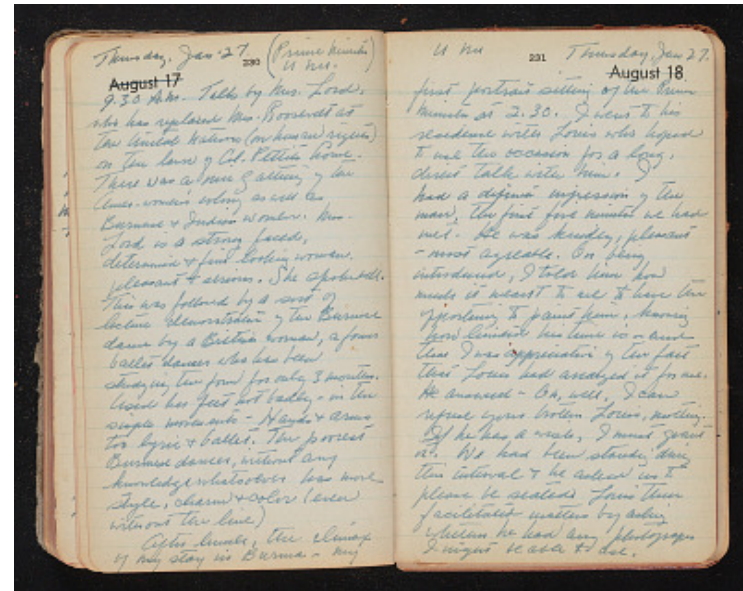 Thursday, Jan 27. 230 (Prime Minister
U Nu.
August 17
9.30 A.M. Talks by Mrs. Lord,
who has replaced Mrs. Roosevelt at
the United Nations (on human rights)
on the lawn of Col. Pettis home.
There was a nice gathering of the
Amer. women's colony as well as
Burmese & Indian women. Mrs.
Lord is a strong faced,
determined & fine looking woman.
pleasant & serious. She spoke well.
This was followed by a sort of
lecture demonstration of the Burmese
dance by a British woman, a former
ballet dancer who has been
studying the form for only 3 months.
Used her feet not badly - in the
simple movements - Hands & arms
too lyric & ballet. The poorest
Burmese dancer, without any
knowledge whatsoever has more
style, charm & color (even
without the line)
After lunch, the climax
of my stay in Burma - my
U Nu 231 Thursday, Jan 27.
August 18
first portrait sitting of the Prime
Minister at 2.30. I went to his
residence with Louis who hoped
to use the occasion for a long,
direct talk with him. I
had a different impression of the
man, the first five minutes we had
met. He was kindly, pleasant
- most agreable. On being
introduced, I told him how
much it meant to me to have the
opportunity to paint him, knowing
how limited his time is and
that I was appreciative of the fact
that Louis had arranged it for me.
He answered - Oh, well, I can
refuse my brother Louis, nothing.
If he has a wish, I must grant
it. We had been standing during
this interval & he asked us to
please be seated. Louis then
facilitated matters by asking
whether he had any photographs
I might be able to use.